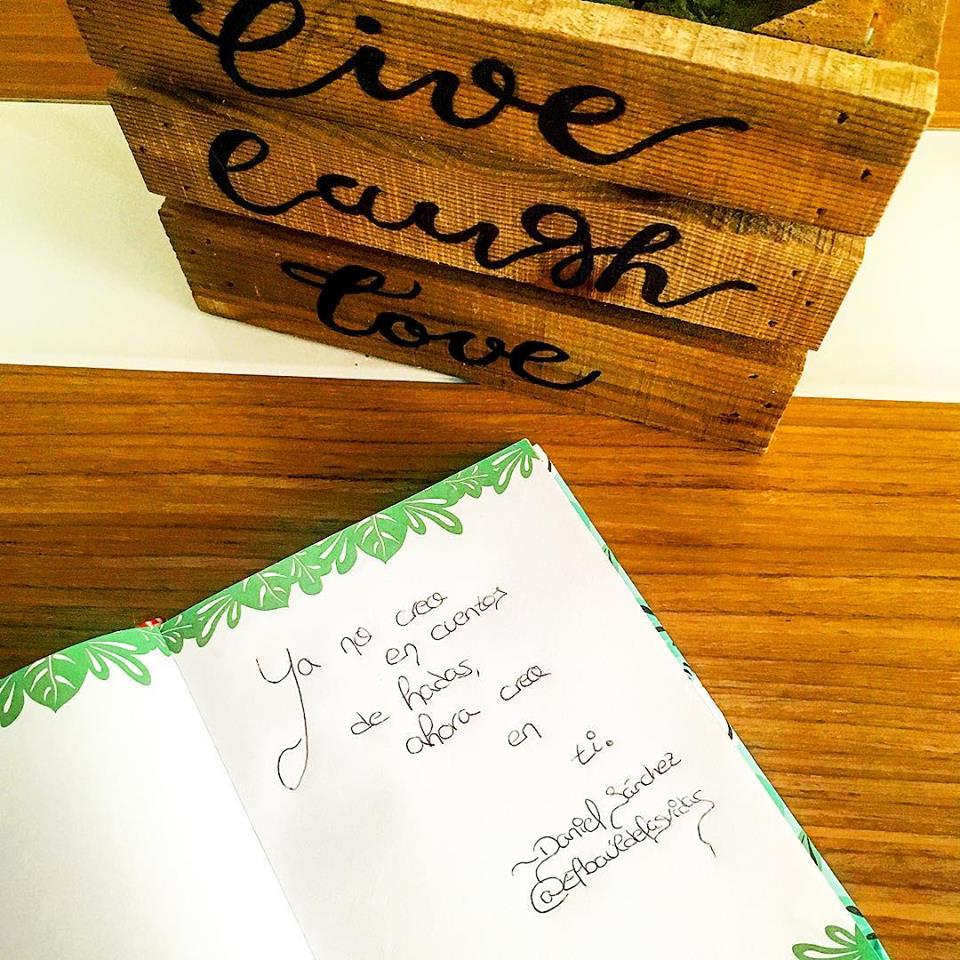 live
laugh
love
Ya no cree
en cuentos
de hadas,
ahora cree
en
ti.
~Daniel Sánchez
@Elbauldelasvidas